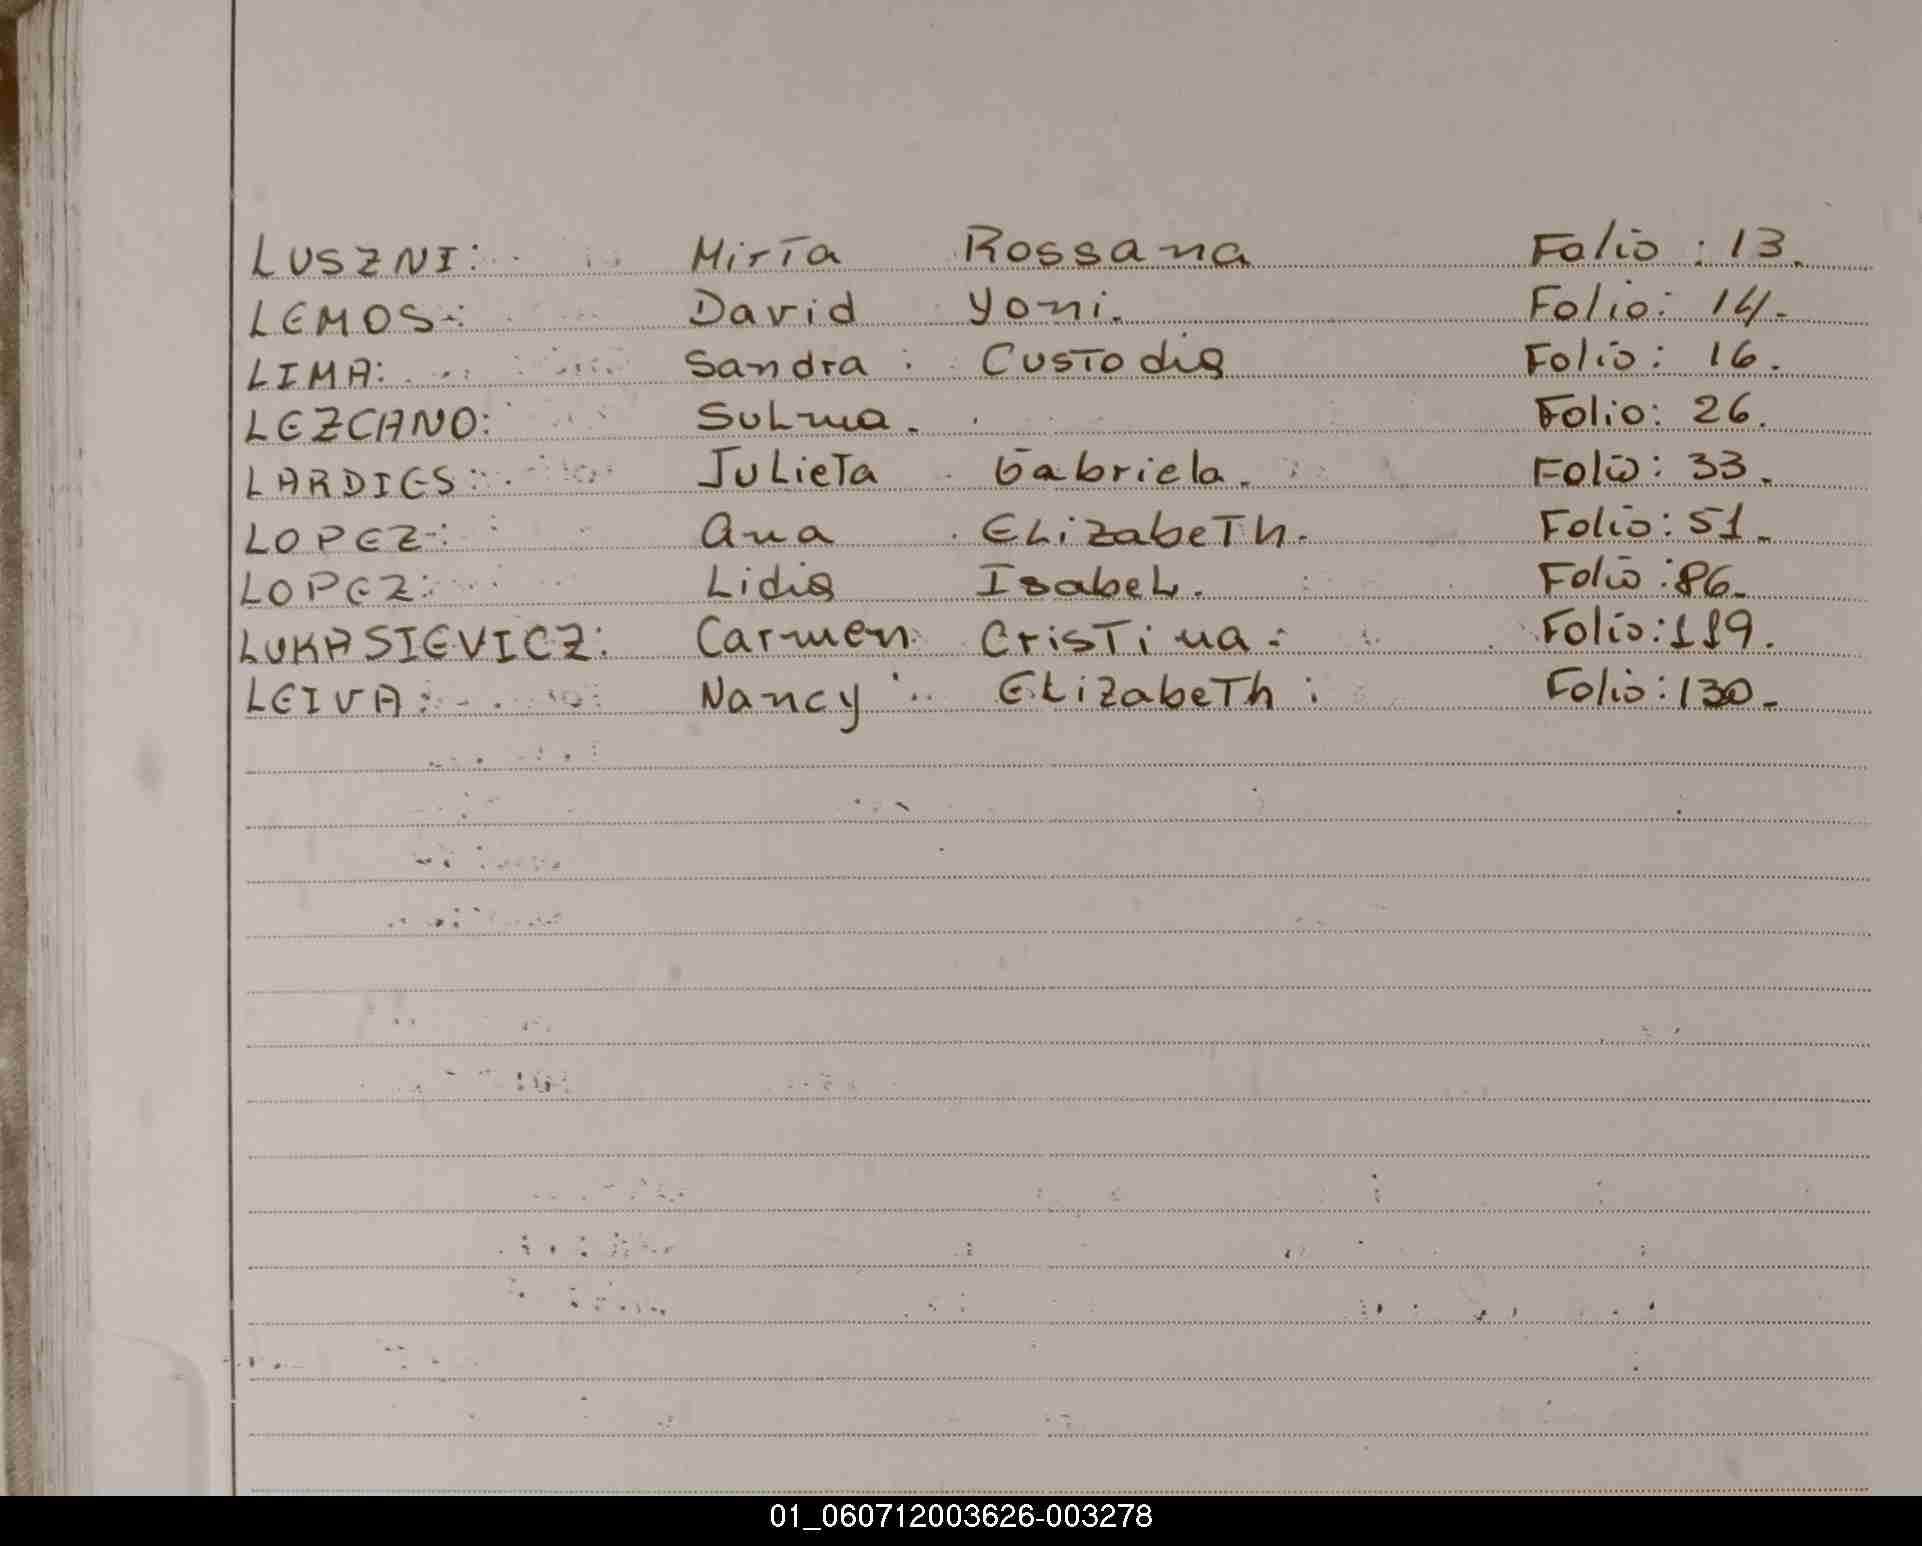 LUSZNI: Mirta Rossana Folio: 13.
LEMOS: David Yoni. Folio: 14.
LIMA: Sandra Custodia Folio: 16.
LEZCANO: Sulma. Folio: 26.
LARDIES: Julieta Gabriela. Folio: 33.
LOPEZ: Ana Elizabeth. Folio: 51.
LOPEZ: Lidia Isabel. Folio: 86.
LUKASIEVICZ: Carmen Cristina. Folio: 119.
LEIVA: Nancy Elizabeth: Folio: 130.
01_060712003626-003278